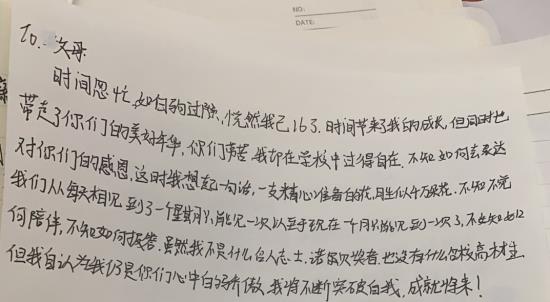 NO:
DATE:
To. 父母:
时间匆忙,如白驹过隙,恍然我已16了.时间带来了我的成长,但同时也
带走了你们的美好年华,你们辛苦,我却在学校中过得自在.不知如何去表达
对你们的感恩,这时我想起一句话,一支精心准备的花,胜似千万鲜花.不知不觉
我们从每天相见到了一个星期才能见一次以至于现在一个月才能见到一次了,不知如
何陪伴,不知如何报答.虽然我不是什么名人志士,诺贝尔奖者.也没有什么名校高材生
但我自认为我仍是你们心中的骄傲,我将不断突破自我,成就将来!